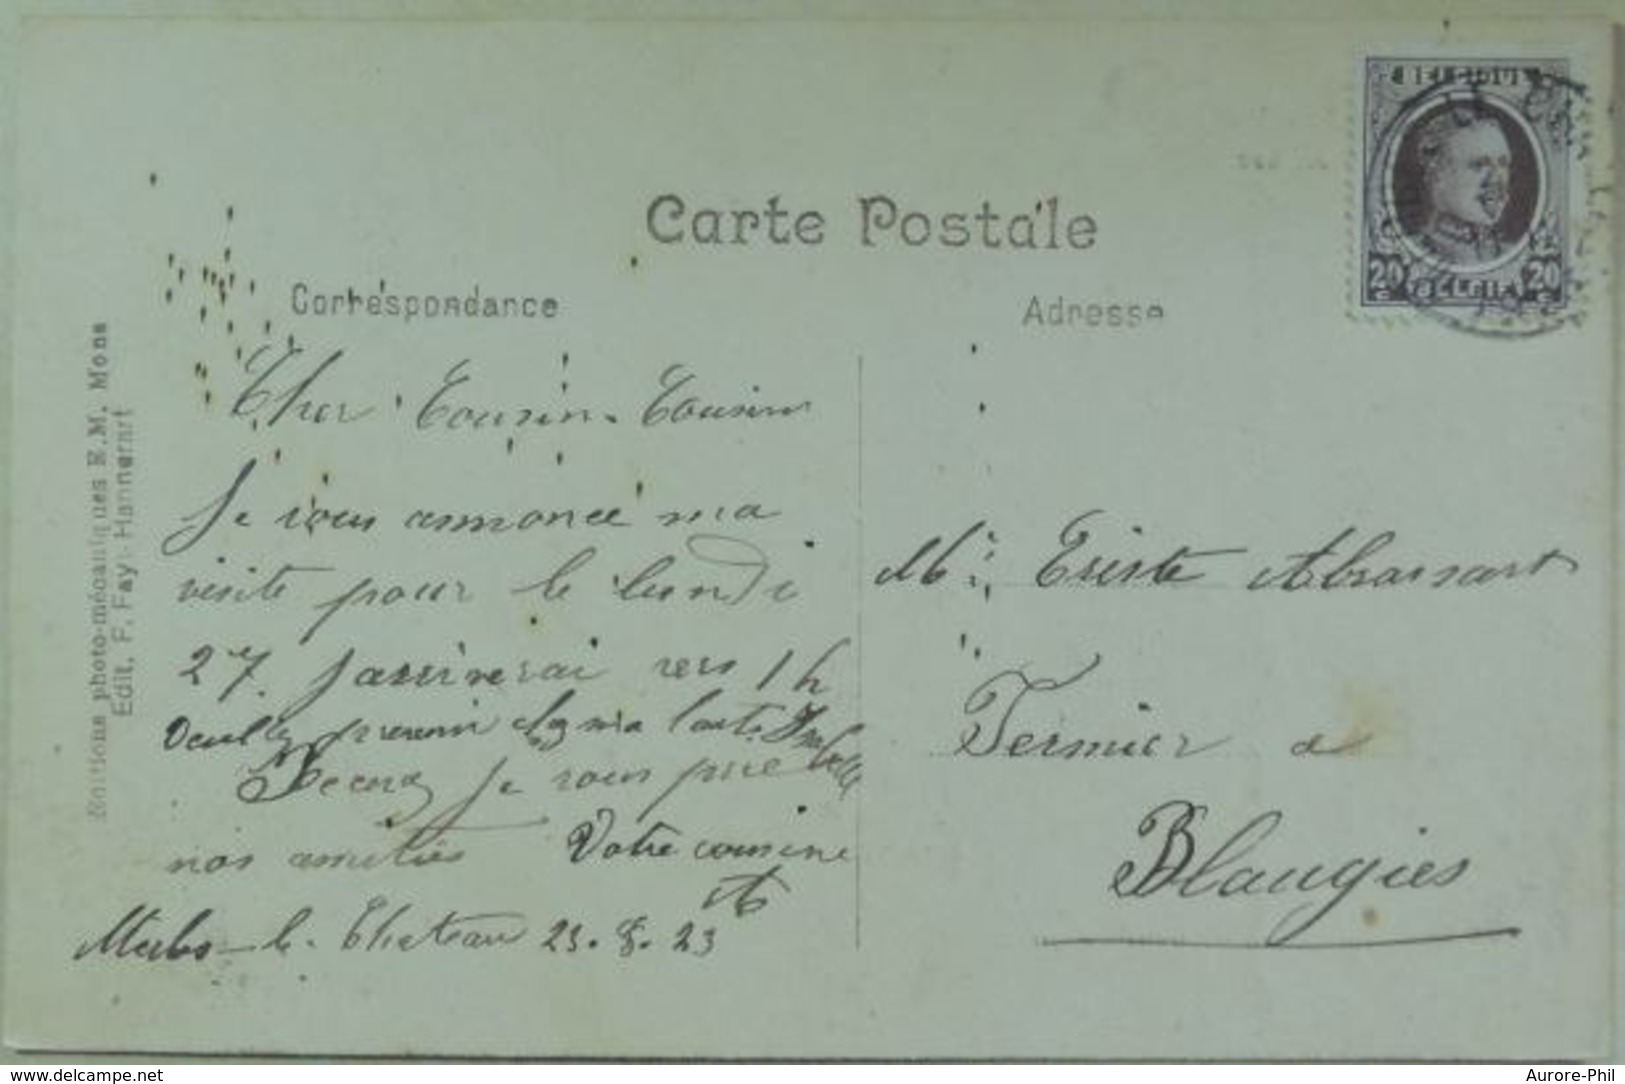 Carte Postale
Correspondance
Adresse
BELGIQUE
20 20
BELGIE
Editions photo-mécaniques E.M. Mons
Edit. F. Fay-Hannerart
Cher Cousin. Cousine
Je vous annonce ma
visite pour le lundi
27. J'arriverai vers 1 h
prevenir ma tante
Je vous prie
nos amitiés Votre cousine
Merbes-le-Chateau 23.8.23
Mr. Abrassart
Fermier a
Blaugies
www.delcampe.net
Aurore-Phil